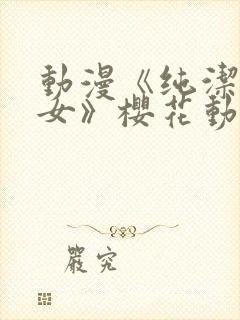 動漫《纯潔
女》櫻花動
嚴究